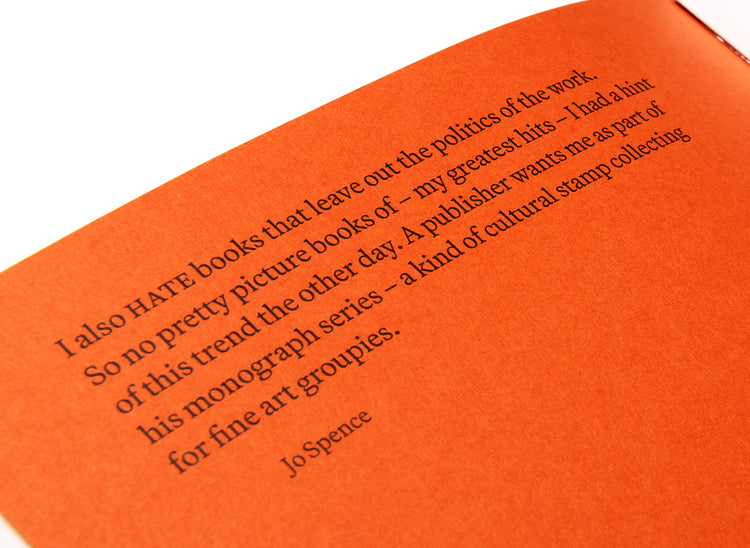 I also HATE books that leave out the politics of the work.
So no pretty picture books of – my greatest hits – I had a hint
of this trend the other day. A publisher wants me as part of
his monograph series – a kind of cultural stamp collecting
for fine art groupies.
Jo Spence